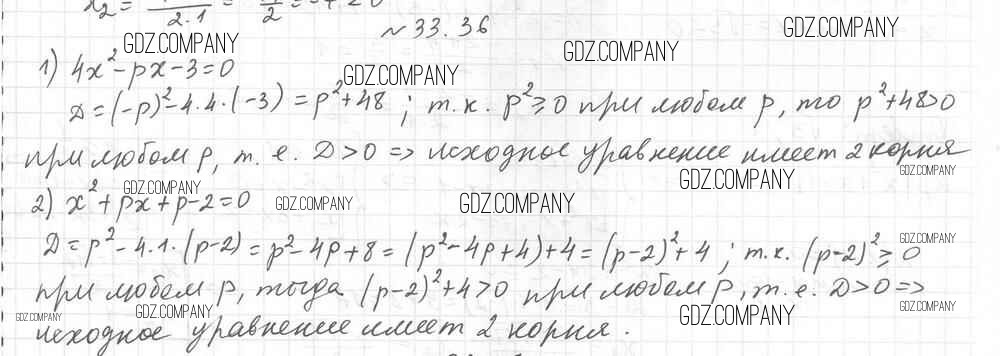 x₂ = 2·1 = 2
№33.36
GDZ.COMPANY GDZ.COMPANY GDZ.COMPANY
1) 4x²-px-3=0 GDZ.COMPANY
D=(-p)²-4·4·(-3)=p²+48; т.к. p²⩾0 при любом p, то p²+48>0
при любом p, т.е. D>0 => исходное уравнение имеет 2 корня
GDZ.COMPANY GDZ.COMPANY GDZ.COMPANY
2) x²+px+p-2=0 GDZ.COMPANY GDZ.COMPANY
D=p²-4·1·(p-2)=p²-4p+8=(p²-4p+4)+4=(p-2)²+4; т.к. (p-2)²⩾0
GDZ.COMPANY
при любом p, тогда (p-2)²+4>0 при любом p, т.е. D>0 =>
GDZ.COMPANY GDZ.COMPANY GDZ.COMPANY GDZ.COMPANY
исходное уравнение имеет 2 корня.